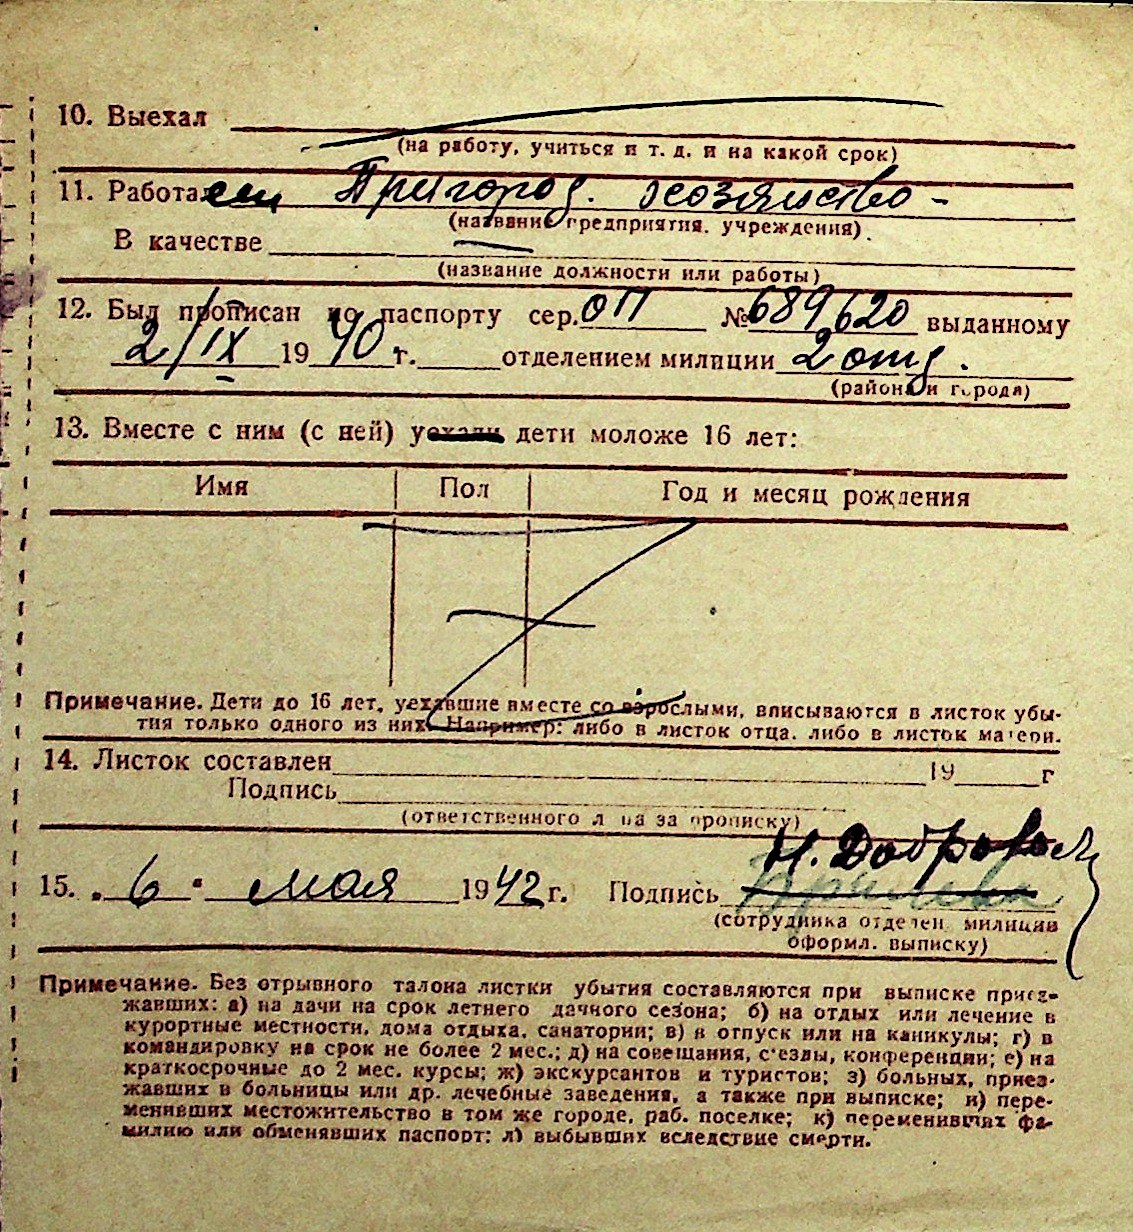 10. Выехал
(на работу, учиться и т. д. и на какой срок)
11. Работа Пригород. хозяйство -
(название предприятия, учреждения)
В качестве
(название должности или работы)
12. Был прописан по паспорту сер. ОП № 689620 выданному
2/IX 1940 г. отделением милиции 2 отд.
(района и города)
13. Вместе с ним (с ней) уехали дети моложе 16 лет:
Имя Пол Год и месяц рождения
Примечание. Дети до 16 лет, уехавшие вместе со взрослыми, вписываются в листок убы-
тия только одного из них. Например: либо в листок отца, либо в листок матери.
14. Листок составлен 19 г
Подпись
(ответственного лица за прописку)
Н. Добровол
15. "6" мая 1942 г. Подпись
(сотрудника отделен. милиции
оформл. выписку)
Примечание. Без отрывного талона листки убытия составляются при выписке приез-
жавших: а) на дачи на срок летнего дачного сезона; б) на отдых или лечение в
курортные местности, дома отдыха, санатории; в) в отпуск или на каникулы; г) в
командировку на срок не более 2 мес.; д) на совещания, съезды, конференции; е) на
краткосрочные до 2 мес. курсы; ж) экскурсантов и туристов; з) больных, приез-
жавших в больницы или др. лечебные заведения, а также при выписке; и) пере-
менивших местожительство в том же городе, раб. поселке; к) переменивших фа-
милию или обменявших паспорт; л) выбывших вследствие смерти.